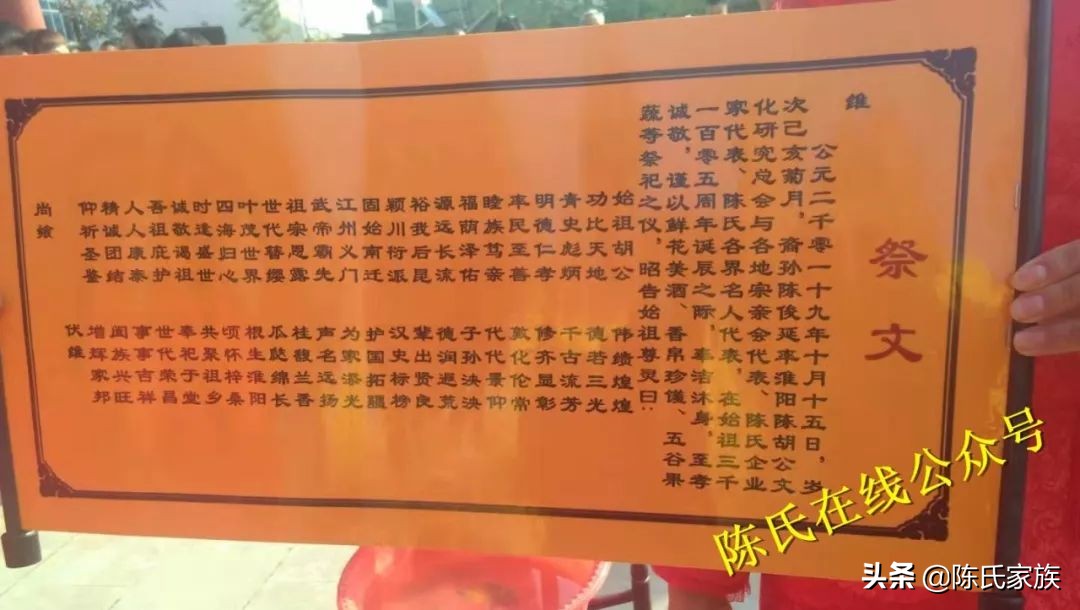 祭文
维
公元二千零一十九年十月十五日，岁
次己亥菊月，裔孙陈俊延率淮阳陈胡公文
化研究总会与各地宗亲会代表、陈氏企业
家代表、陈氏各界名人代表，在始祖三千
一百零五周年诞辰之际，率洁沐身，至孝
诚敬，谨以鲜花美酒、香帛珍馐、五谷果
蔬等祭祀之仪，昭告始祖尊灵曰：
始祖胡公 伟绩煌煌
功比天地 德若三光
青史彪炳 千古流芳
明德仁孝 修齐显彰
率民至善 敦化伦常
睦族笃亲 代代景仰
福荫泽佑 子孙泱泱
源远流长 德润遐荒
裕我后昆 辈出贤良
颖川衍派 汉史标榜
固始南迁 护国拓疆
江州义门 为家添光
武帝霸先 声名远扬
祖宗恩露 桂馥兰香
世代替缨 瓜瓞绵长
叶茂世界 根生淮阳
四海归心 顷怀梓桑
时逢盛世 共聚祖乡
诚敬谒祖 奉祀于堂
吾祖庇护 世代荣昌
人人康泰 事事吉祥
精诚团结 阖族兴旺
仰祈圣鉴 增辉家邦
伏维
尚飨
陈氏在线公众号
头条 @陈氏家族